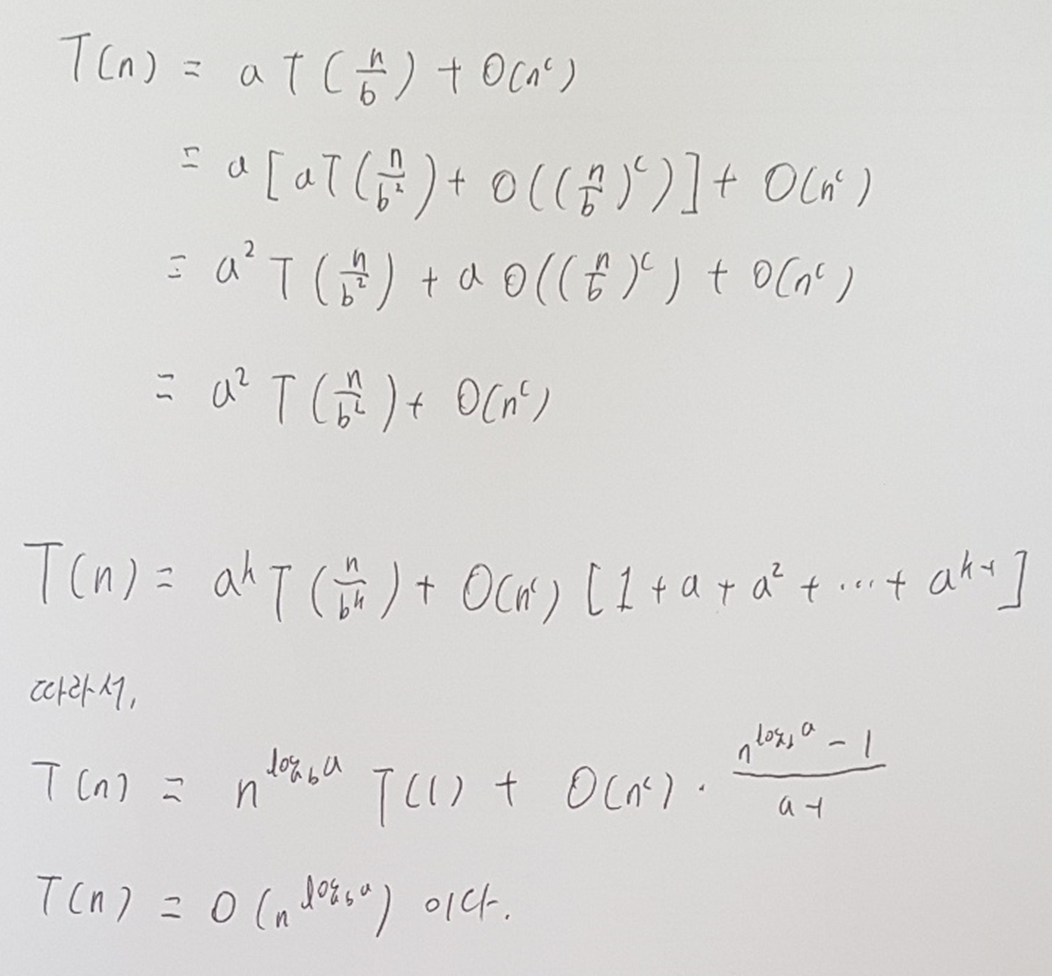 T(n) = a T(n/b) + O(n^c)
= a[aT(n/b^2) + O((n/b)^c)] + O(n^c)
= a^2 T(n/b^2) + a O((n/b)^c) + O(n^c)
= a^2 T(n/b^2) + O(n^c)
T(n) = a^k T(n/b^k) + O(n^c) [1 + a + a^2 + ... + a^(k-1)]
따라서,
T(n) = n^(log_b a) T(1) + O(n^c) · (n^(log_b a) - 1)/(a-1)
T(n) = O(n^(log_b a)) 이다.